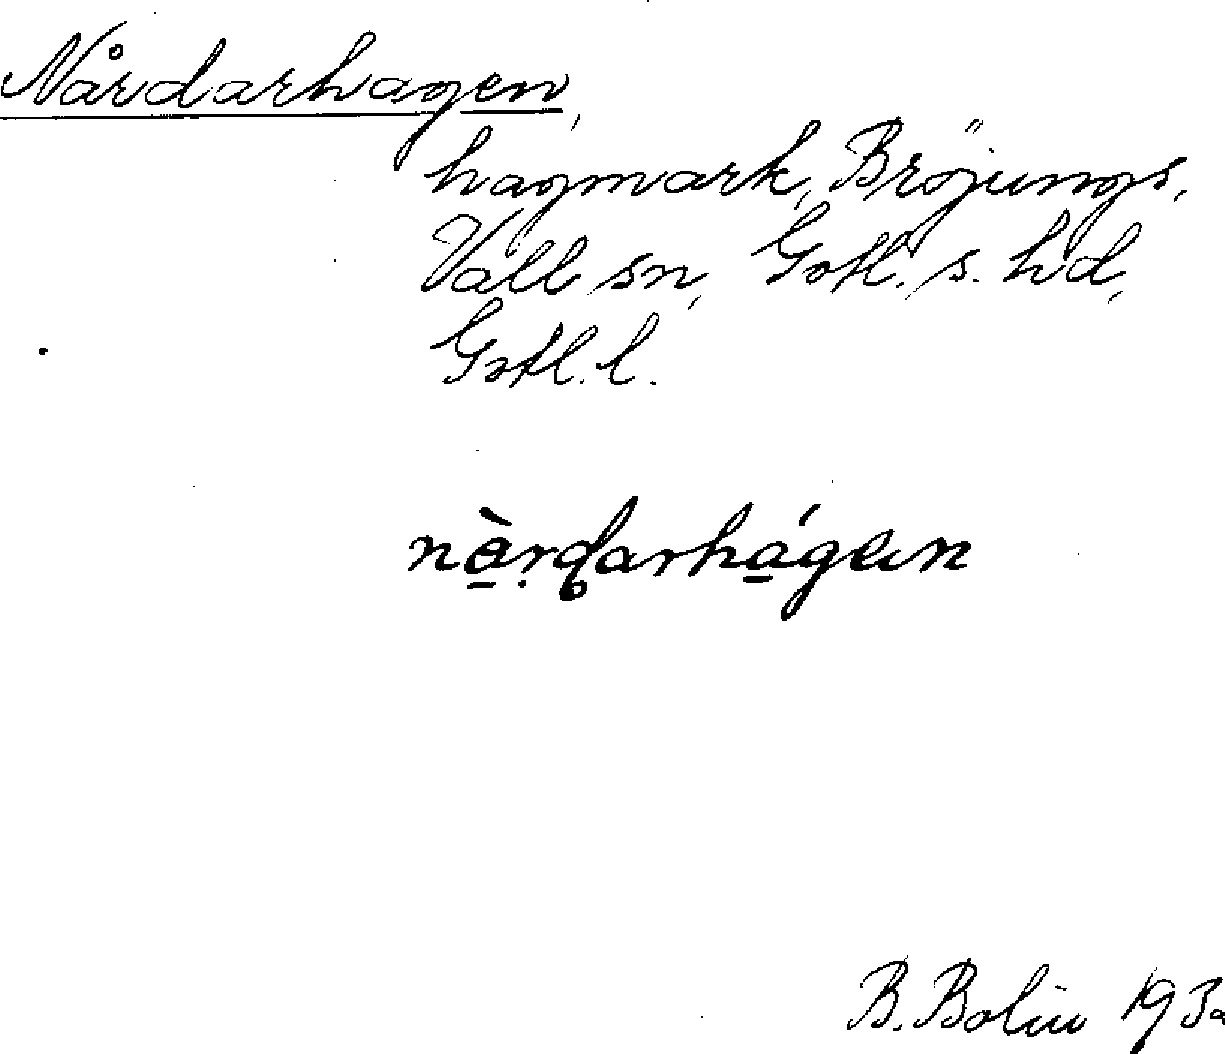 Nårdarhagen,
hagmark, Bröjungs,
Vall sn, Gotl. s. hd,
Gotl. l.
nàrdarhágen
B. Bolin